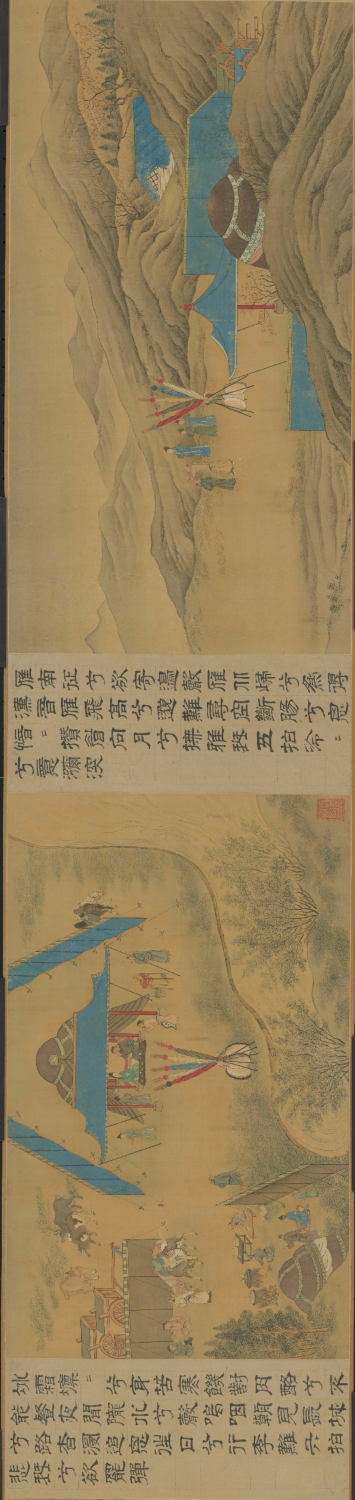 雁南征兮欲寄邊聲雁北歸兮為得
漢音雁飛高兮邈難尋空斷腸兮思
愔〻攢眉向月兮撫雅琴五拍泠〻
兮意彌深
冰霜凜〻兮身苦寒饑對肉酪兮不
能餐夜聞隴水兮聲嗚咽朝見長城
兮路杳漫追思往日兮行李難六拍
悲兮欲罷彈